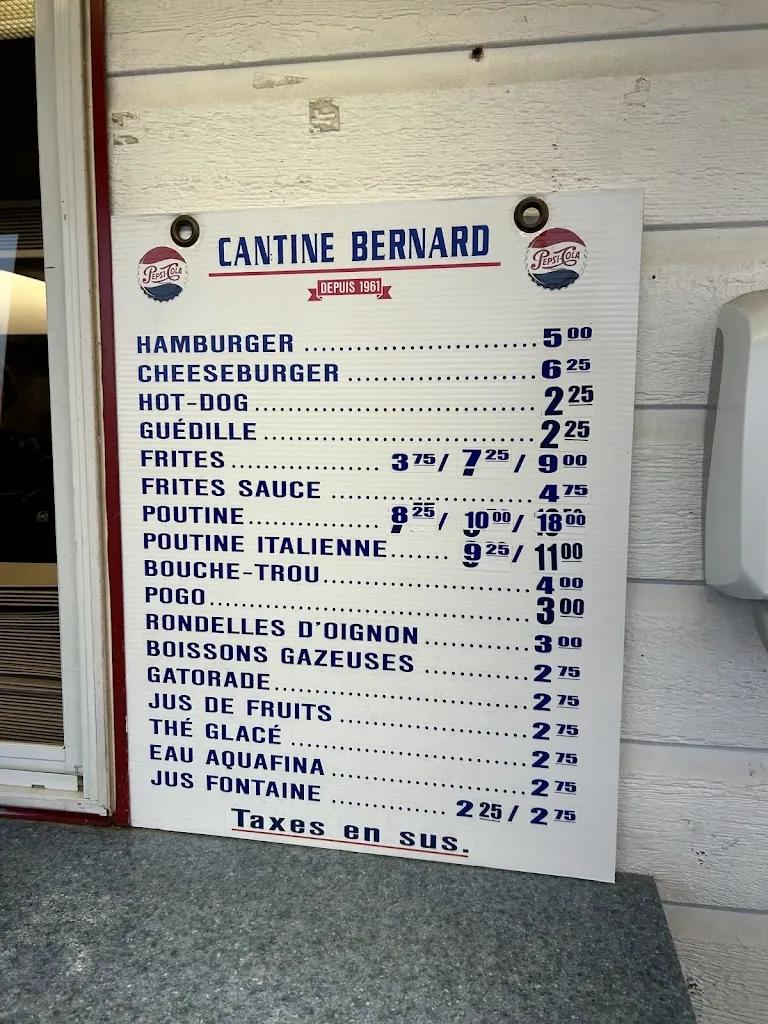 CANTINE BERNARD
PEPSI-COLA
PEPSI-COLA
DEPUIS 1961
HAMBURGER .................... 5 00
CHEESEBURGER .................... 6 25
HOT-DOG .................... 2 25
GUÉDILLE .................... 2 25
FRITES .................... 3 75 / 7 25 / 9 00
FRITES SAUCE .................... 4 75
POUTINE .................... 8 25 / 10 00 / 18 00
POUTINE ITALIENNE ....... 9 25 / 11 00
BOUCHE-TROU .................... 4 00
POGO .................... 3 00
RONDELLES D'OIGNON .................... 3 00
BOISSONS GAZEUSES .................... 2 75
GATORADE .................... 2 75
JUS DE FRUITS .................... 2 75
THÉ GLACÉ .................... 2 75
EAU AQUAFINA .................... 2 75
JUS FONTAINE .................... 2 25 / 2 75
Taxes en sus.